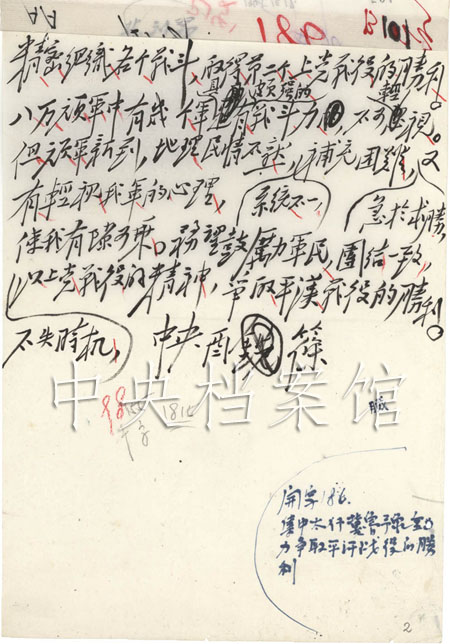 981
精密组织各个战斗，取得第二个上党战役的胜利。
八万顽军中有几个军是具有颇强的战斗力的，不可轻视。
但顽军新到，地理民情不熟，系统不一，补充困难，又急于求胜，
有轻视我军的心理，
使我有隙可乘。务望鼓励军民，团结一致，不失时机，
以上党战役的精神，争取平汉战役的胜利。
中央 酉 篠
中央档案馆
开字186.
集中太行冀鲁豫全力争取平汉战役的胜利
2